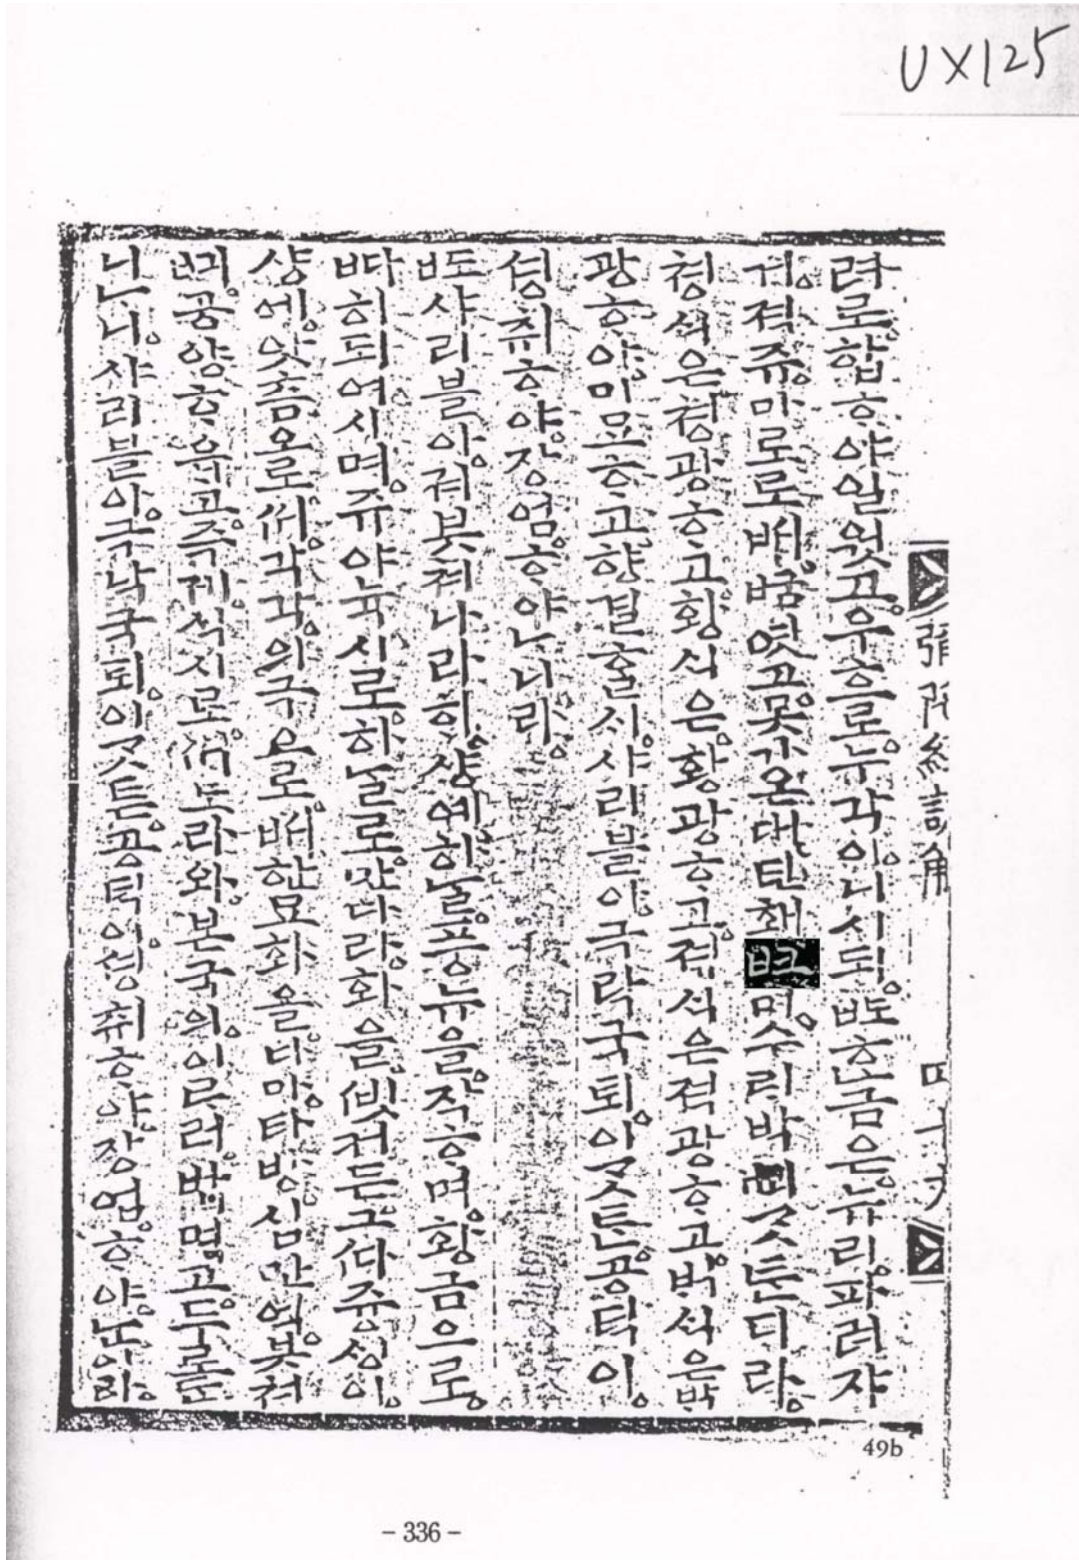 UX125
彌陀經諺解
려로。합ᄒᆞ야일윗고。우흐로。누각이。이시되。ᄯᅩᄒᆞᆫ금은。뉴리。파려쟈
거。젹쥬。마로로ᄡᅥ。ᄭᅮ몃고。못가온대년홰ꥴᅳ며。수릐박회ᄀᆞᆺᄐᆞᆫ디라。
청석은청광ᄒᆞ고。황석은。황광ᄒᆞ고。젹석은젹광ᄒᆞ고。ᄇᆡᆨ석은ᄇᆡᆨ
광ᄒᆞ야。미묘ᄒᆞ고。향결ᄒᆞᆯᄉᆡ。샤리블아。극락국퇴。이ᄀᆞᆺᄐᆞᆫ。공덕이。
셩취ᄒᆞ야。장엄ᄒᆞ얀ᄂᆞ니라。
ᄯᅩ샤리블아。저붓쳐나라히。샹예。하ᄂᆞᆯ풍뉴을。작ᄒᆞ며。황금으로。
ᄯᅡ히되여시며。쥬야뉵시로。하ᄂᆞᆯ로。만다라화을。ᄲᅵᆺ거든。그ᄯᅡ즁ᄉᆡᆼ이。
샹에。앗ᄎᆞᆷ오로ᄡᅥ。각각。의국으로。ᄡᅥ한묘화을。다마。타방심만억。붓쳐
ᄭᅴ。공양ᄒᆞ옵고。즉제。식시로ᄡᅥ。도라와。본국의。이르러。밥먹고。두로ᄃᆞᆫ
닌ᄂᆞ니。샤리블아。극낙국퇴。이ᄀᆞᆺᄐᆞᆫ。공덕이。셩취ᄒᆞ야。장엄ᄒᆞ야ᄂᆞ니라。
49b
- 336 -